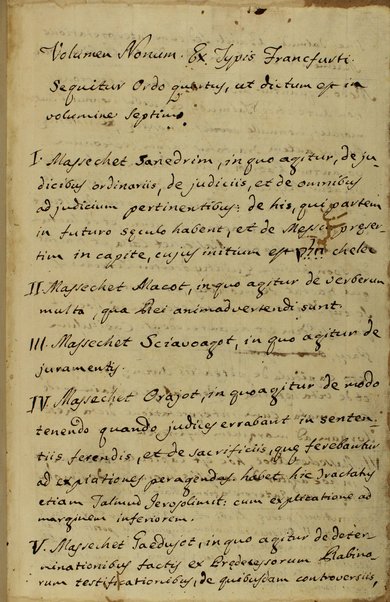 Volumen Nonum. Ex Typis Francfurti.
Sequitur Ordo quartus, ut dictum est in
volumine septimo
I. Massechet Sanedrim, in quo agitur, de ju-
dicibus ordinariis, de judiciis, et de omnibus
ad judicium pertinentibus: de his, qui partem
in futuro sęculo habent, et de Messia preser-
tim in capite, cujus initium est חלק chelec
II. Massechet Macot, in quo agitur de verberum
multa, qua Rei animadvertendi sunt.
III. Massechet Sciavoagot, in quo agitur de
juramentis.
IV. Massechet Orajot, in quo agitur de modo
tenendo quando judices errabant in senten-
tiis ferendis, et de sacrificiis, quę ferebantur
ad expiationes peragendas. habet hic tractatus
etiam Talmud Jerosolimit. cum explicatione ad
marginem inferiorem.
V. Massechet Gaedujot, in quo agitur de deter-
minationibus factis ex Predecessorum Rabino-
rum testificationibus, de quibusdam controversiis,